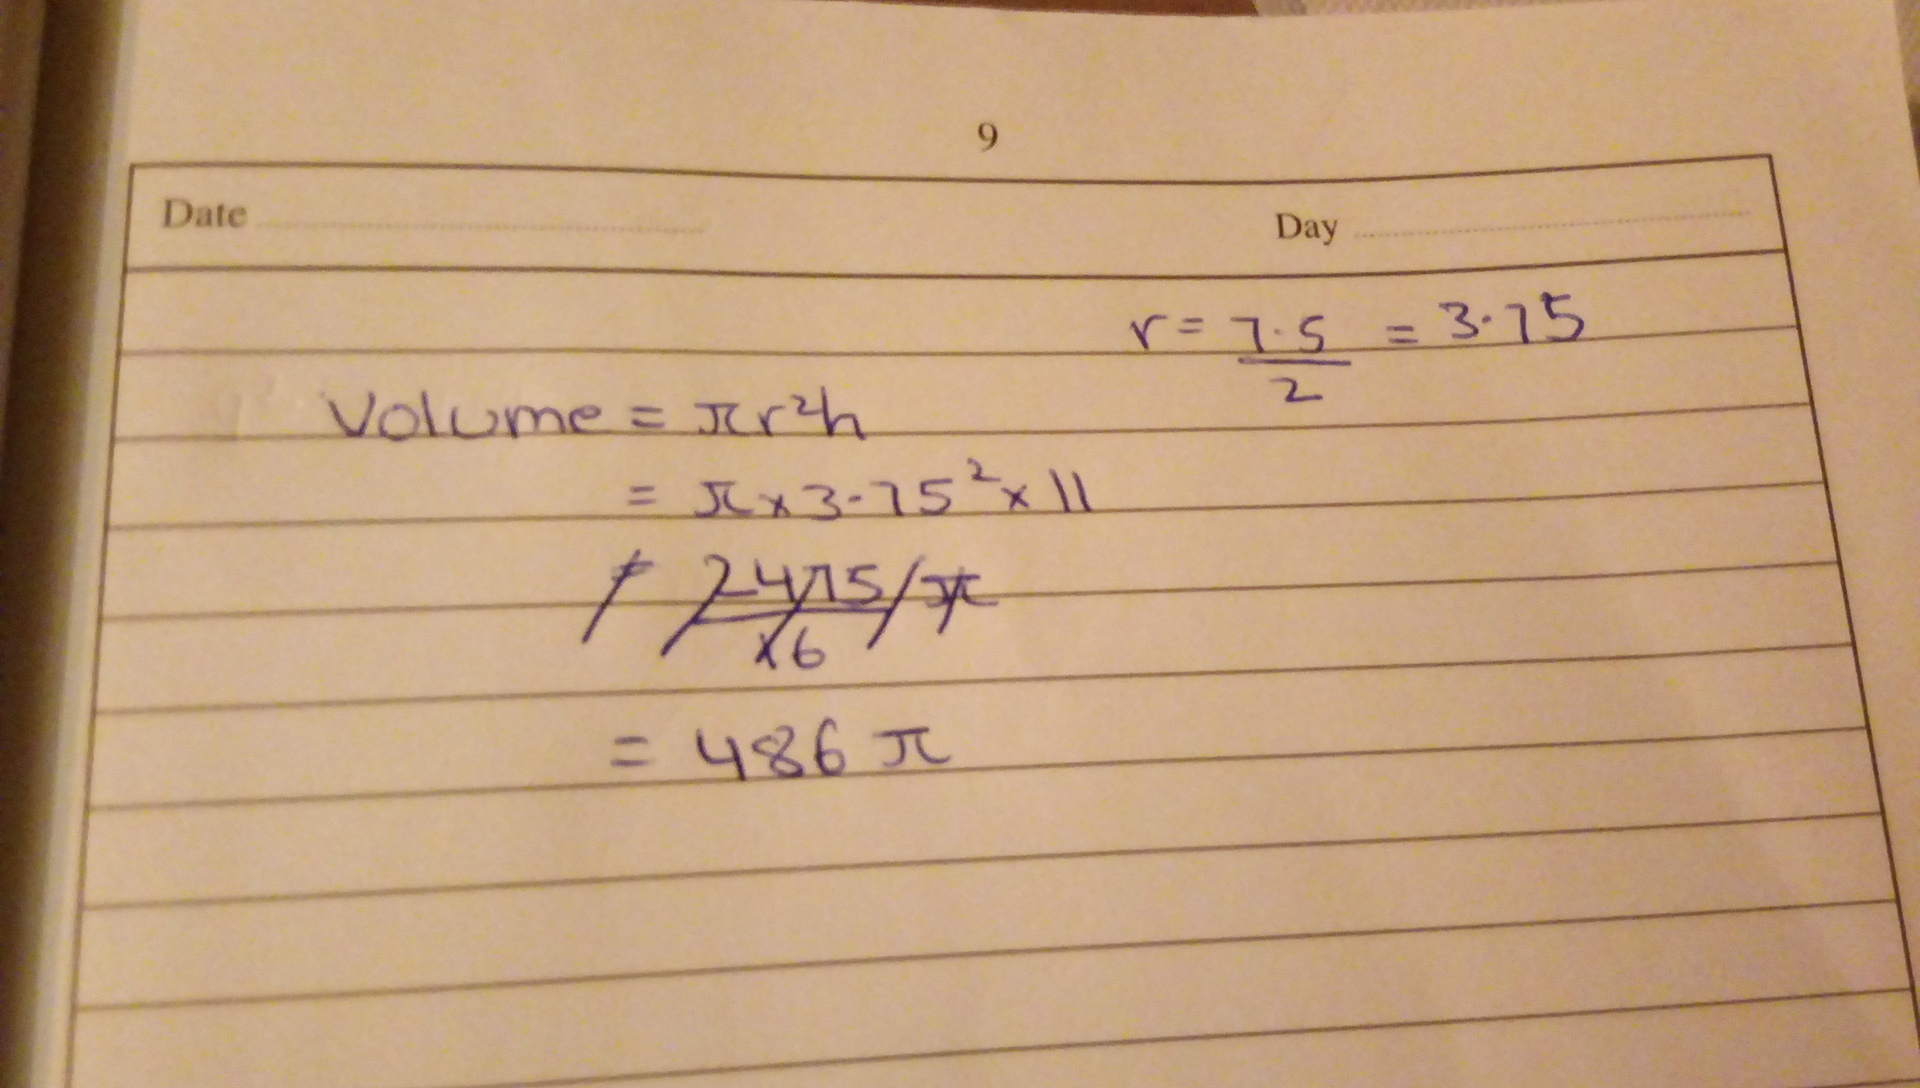 9
Date
Day
r = 7.5/2 = 3.75
Volume = πr²h
= π x 3.75² x 11
= 2475/16 π
= 486 π